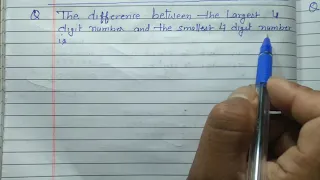 Q The difference between the largest 4
digit number and the smallest 4 digit number
is
Q